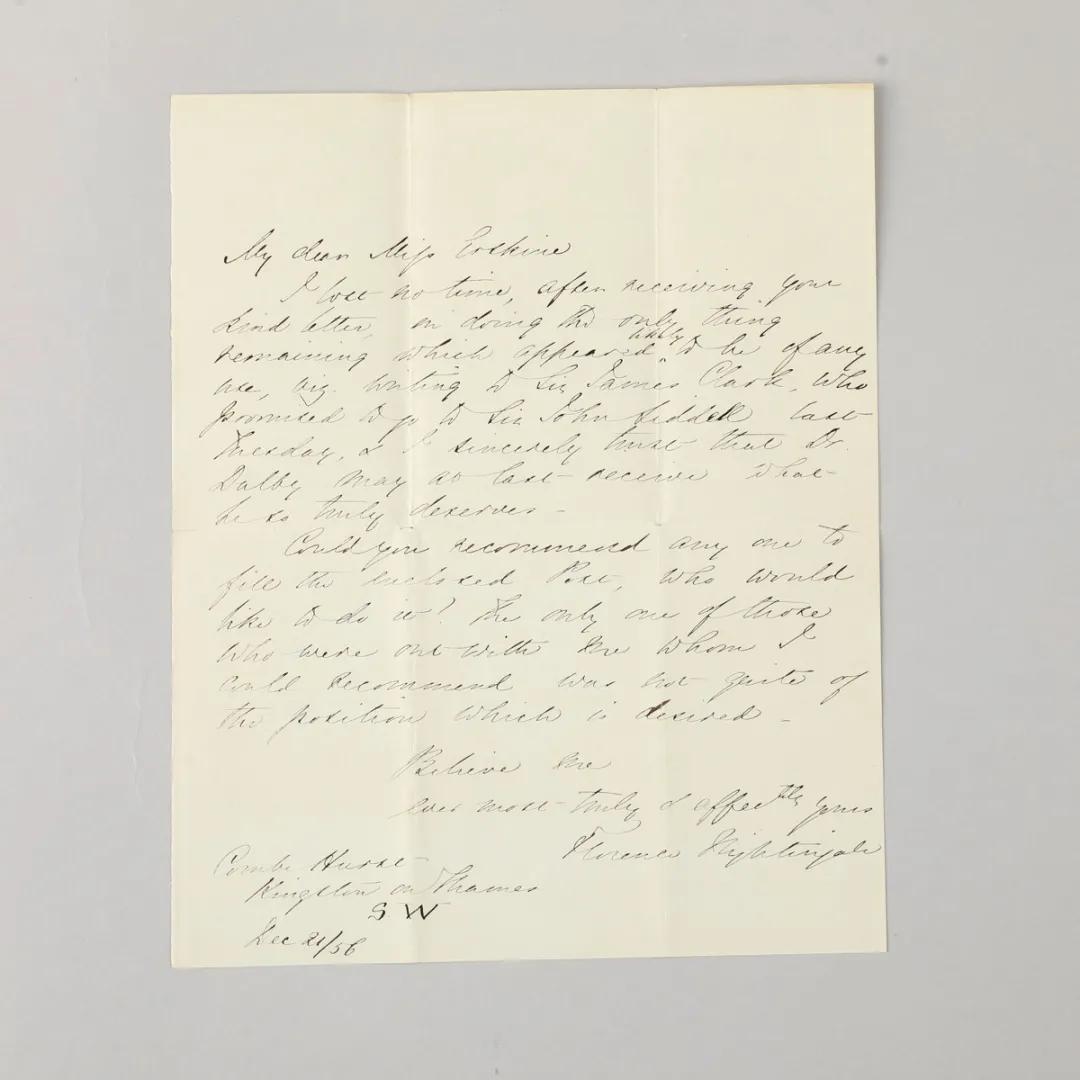 My dear Miss Erskine
I lost no time, after receiving your
kind letter, in doing the only thing
remaining which appeared likely to be of any
use, viz. writing to Sir James Clark, who
promised to go to Sir John Liddell last
Tuesday, & I sincerely trust that Dr.
Dalby may at last receive what
he so truly deserves -
Could you recommend any one to
fill the enclosed Post, who would
like to do it? The only one of those
who were out with me whom I
could recommend was not quite of
the position which is desired -
Believe me
ever most truly & affectly yours
Florence Nightingale
Combe Hurst
Kingston on Thames
S W
Dec 21/56